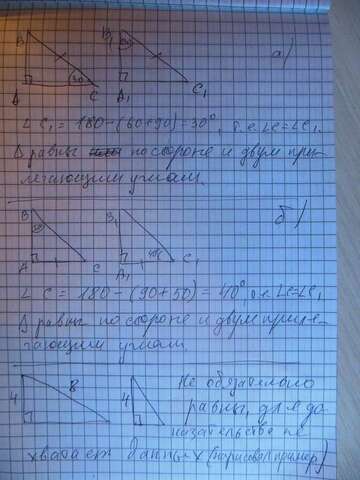 B B₁ а)
60°
30
A C A₁ C₁
∠ C₁ = 180 - (60+90) = 30°, т.е. ∠C = ∠C₁.
Δ равны по стороне и двум при-
легающим углам.
B B₁ б)
50
40°
A C A₁ C₁
∠ C = 180 - (90 + 50) = 40°, т.е. ∠C = ∠C₁
Δ равны по стороне и двум приле-
гающим углам.
4 8 4
Не обязательно
равны, для до
казательства не
хватает данных (нарисовал пример)